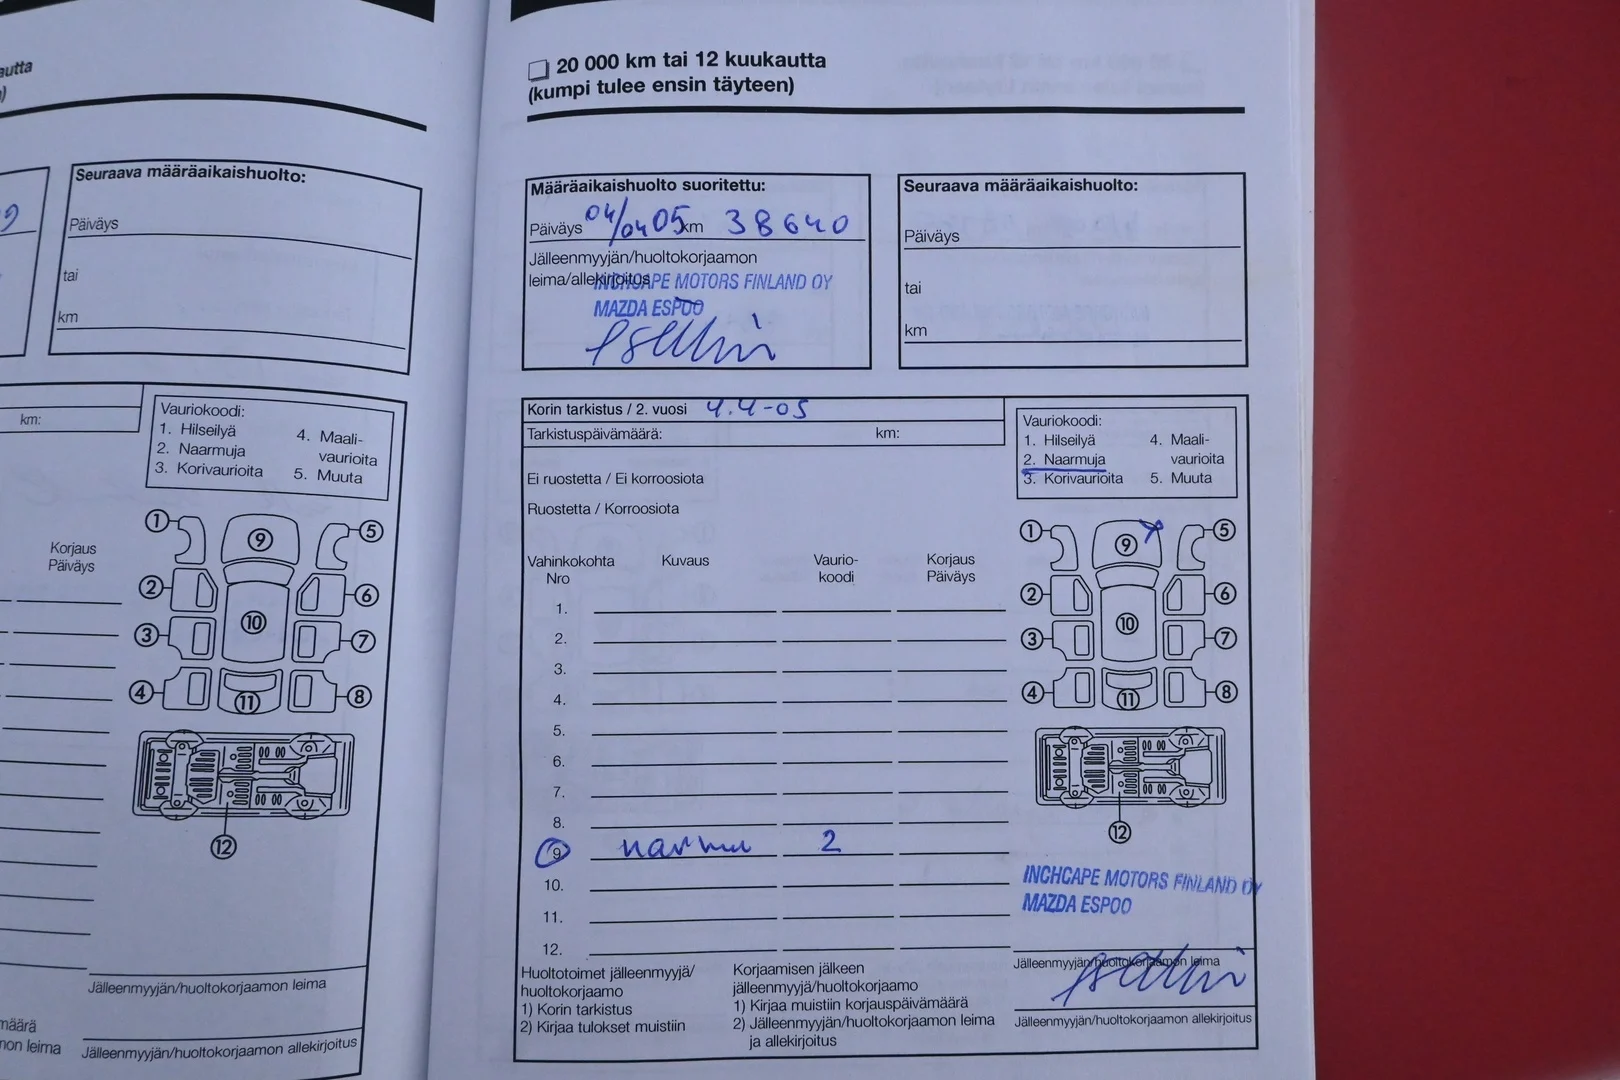 autta
Seuraava määräaikaishuolto:
Päiväys
tai
km
km:
Vauriokoodi:
1. Hilseilyä
2. Naarmuja
3. Korivaurioita
4. Maali-
vaurioita
5. Muuta
Korjaus
Päiväys
1
2
3
4
5
6
7
8
9
10
11
12
Jälleenmyyjän/huoltokorjaamon leima
Jälleenmyyjän/huoltokorjaamon allekirjoitus
määrä
non leima
20 000 km tai 12 kuukautta
(kumpi tulee ensin täyteen)
Määräaikaishuolto suoritettu:
Päiväys 04/04 05 km 38640
Jälleenmyyjän/huoltokorjaamon
leima/allekirjoitus
INCHCAPE MOTORS FINLAND OY
MAZDA ESPOO
Seuraava määräaikaishuolto:
Päiväys
tai
km
Korin tarkistus / 2. vuosi 4.4-05
Tarkistuspäivämäärä: km:
Ei ruostetta / Ei korroosiota
Ruostetta / Korroosiota
Vahinkokohta Kuvaus Vaurio- Korjaus
Nro koodi Päiväys
1.
2.
3.
4.
5.
6.
7.
8.
9. narmu 2
10.
11.
12.
Vauriokoodi:
1. Hilseilyä
2. Naarmuja
3. Korivaurioita
4. Maali-
vaurioita
5. Muuta
1
2
3
4
5
6
7
8
9
10
11
12
INCHCAPE MOTORS FINLAND OY
MAZDA ESPOO
Jälleenmyyjän/huoltokorjaamon leima
Jälleenmyyjän/huoltokorjaamon allekirjoitus
Huoltotoimet jälleenmyyjä/
huoltokorjaamo
1) Korin tarkistus
2) Kirjaa tulokset muistiin
Korjaamisen jälkeen
jälleenmyyjä/huoltokorjaamo
1) Kirjaa muistiin korjauspäivämäärä
2) Jälleenmyyjän/huoltokorjaamon leima
ja allekirjoitus